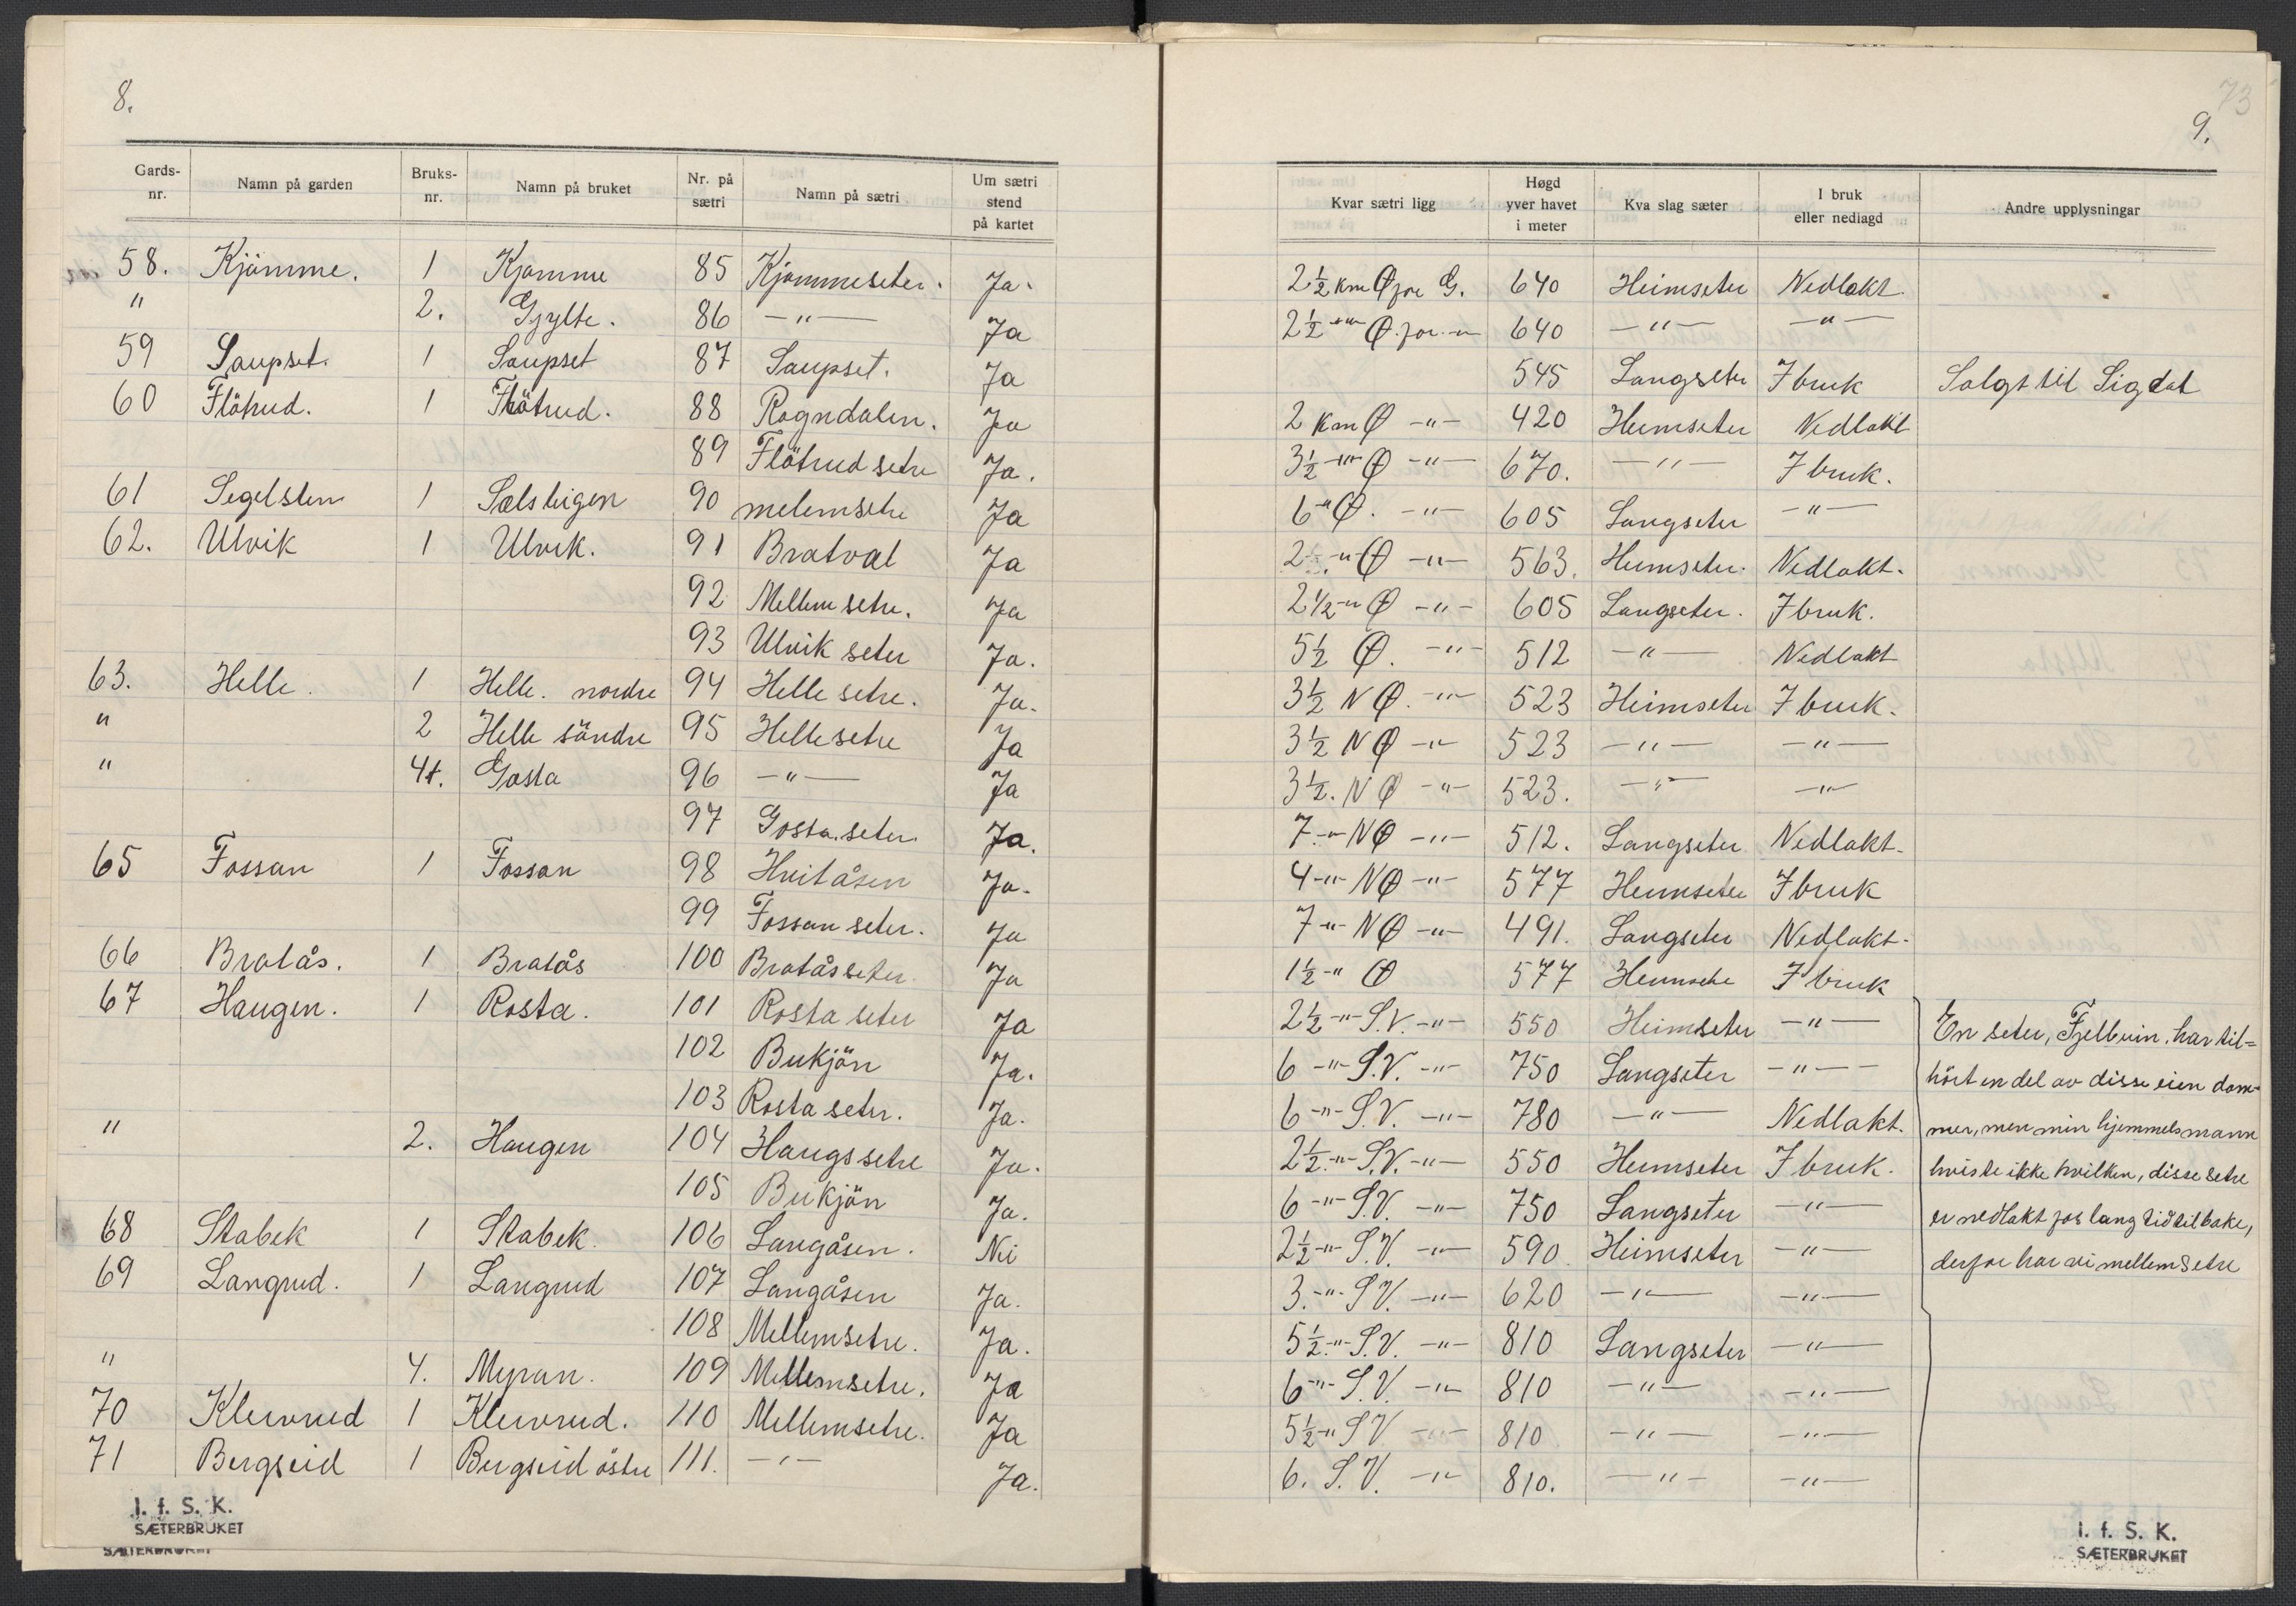 8.
Gards-nr. Namn på garden Bruks-nr. Namn på bruket Nr. på sætri Namn på sætri Um sætri stend på kartet
58. Kjömme. 1 Kjömme 85 Kjömmeseter. Ja.
" 2. Gjylte. 86 —"— Ja
59 Saupset. 1 Saupset 87 Saupset. Ja
60 Flötrud. 1 Flötrud. 88 Rogndalen. Ja
89 Flötrud setre Ja.
61 Segelsten 1 Sælsteigen 90 melemsetre Ja
62. Ulvik 1 Ulvik. 91 Bratval Ja
92 Mellem setre. Ja
93 Ulvik seter Ja.
63. Helle. 1 Helle. nordre 94 Helle setre. Ja.
" 2 Helle söndre 95 Helle setre Ja
" 4. Gosta 96 —"— Ja
97 Gosta. seter. Ja.
65 Fossan 1 Fossan 98 Hvitåsen Ja.
99 Fossan seter. Ja
66 Bratås. 1 Bratås 100 Bratåsseter. Ja
67 Haugen. 1 Rosta. 101 Rosta seter Ja
102 Bukjön Ja.
103 Rosta seter. Ja.
" 2. Haugen 104 Haugssetre Ja.
105 Bukjön Ja.
68 Stabek 1 Stabek. 106 Langåsen. Nei
69 Langrud. 1 Langrud 107 Langåsen Ja.
108 Mellemsetre. Ja.
" 4. Myran. 109 Mellemsetre. Ja
70 Klevrud 1 Klevrud. 110 Mellemsetre. Ja
71 Bergseid 1 Bergseid östre 111. —"— Ja.
I. f. S. K.
SÆTERBRUKET
SÆTERBRUKET
73
9.
Kvar sætri ligg Høgd yver havet i meter Kva slag sæter I bruk eller nedlagd Andre upplysningar
2½ km Ø for G. 640 Heimseter Nedlakt
2½ —"— Ø. for —"— 640 —"— —"—
545 Langseter I bruk Solgt til Sigdal
2 km Ø —"— 420 Heimseter Nedlakt
3½ —"— Ø —"— 670. —"— I bruk.
6 —"— Ø. —"— 605 Langseter —"—
2½ —"— Ø —"— 563. Heimseter. Nedlakt.
2½ —"— Ø —"— 605 Langseter. I bruk.
5½ Ø. —"— 512 —"— Nedlakt
3½ NØ. —"— 523 Heimseter I bruk.
3½ NØ —"— 523 —"— —"—
3½. NØ —"— 523. —"— —"—
7 —"— NØ —"— 512. Langseter Nedlakt.
4 —"— NØ —"— 577 Heimseter I bruk
7 —"— NØ —"— 491. Langseter Nedlakt.
1½ —"— Ø 577 Heimsetre I bruk
2½ —"— S.V. —"— 550 Heimseter —"—
6 —"— S.V. —"— 750 Langseter —"—
6 —"— S.V. —"— 780 —"— Nedlakt.
2½ —"— S.V. —"— 550 Heimseter I bruk.
6 —"— S.V. —"— 750 Langseter —"—
2½ —"— S.V. —"— 590 Heimseter —"—
3. —"— S.V. —"— 620 —"— —"—
5½ —"— S.V. —"— 810 Langseter —"—
6 —"— S.V. —"— 810 —"— —"—
5½ —"— S.V —"— 810 —"— —"—
6. S.V. —"— 810. —"— —"—
En seter, Fjellvin, har til=
hört en del av disse eien dom-
mer, men min hjemmelsmann
hviste ikke hvilken, disse setre
er nedlakt for lang tid tilbake,
derfor har vi mellemsetre
I. f. S. K.
SÆTERBRUKET